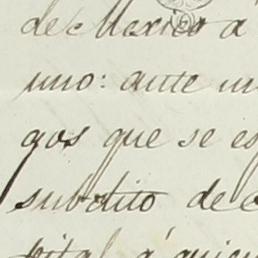 de Mexico a
uno: ante
gos que se es
subdito de
pital a quien